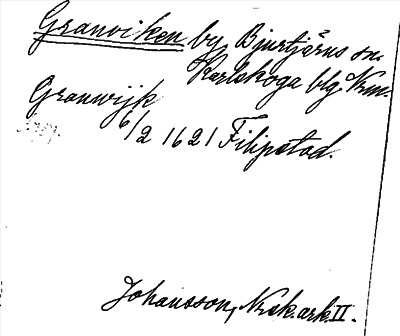 Granviken by Bjurtjärns sn.
Karlskoga blg. Vrm.
Granwijk
6/2 1621 Filipstad.
Johansson, Nrsk. ark. II.